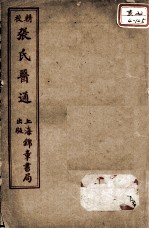 精校
張氏醫通
上海錦章書局
出版